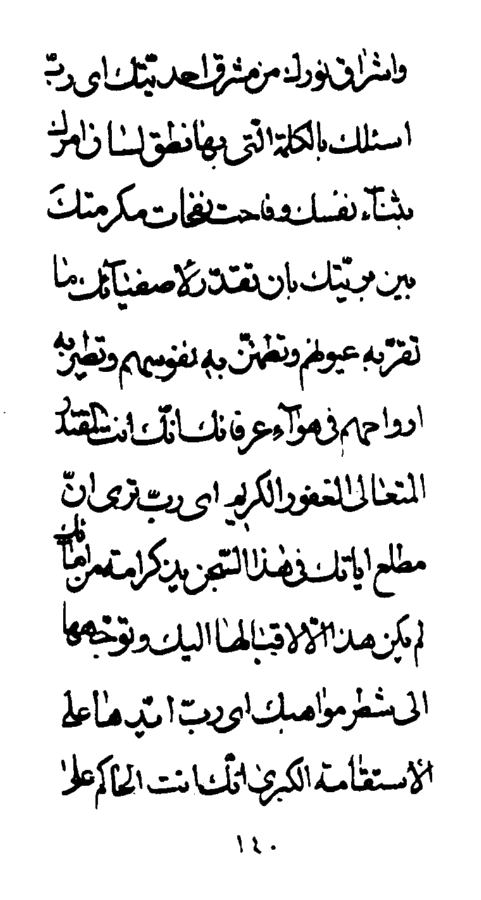 واشراق نورك من مشرق احديّتك اى ربّ
اسئلك بالكلمة الّتى بها نطق لسان امرك
بثنآء نفسك وفاحت نفحات مكرمتك
بين بريّتك بان تقدّر لاصفيآئك ما
تقرّ به عيونهم وتطمئنّ به نفوسهم وتطير به
ارواحهم فى هوآء عرفانك انّك انت المقتدر
المتعالى الغفور الكريم اى ربّ ترى انّ
مطلع اياتك فى هذا السّجن يريد كرامة من امائك
لم يكن هذا الّا لاقبالها اليك وتوجّهها
الى شطر مواهبك اى ربّ ايّدها على
الاستقامة الكبرى انّك انت الحاكم على
١٤٠